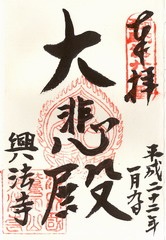 奉拝
平成二十二年
一月九日
大悲殿
興法寺